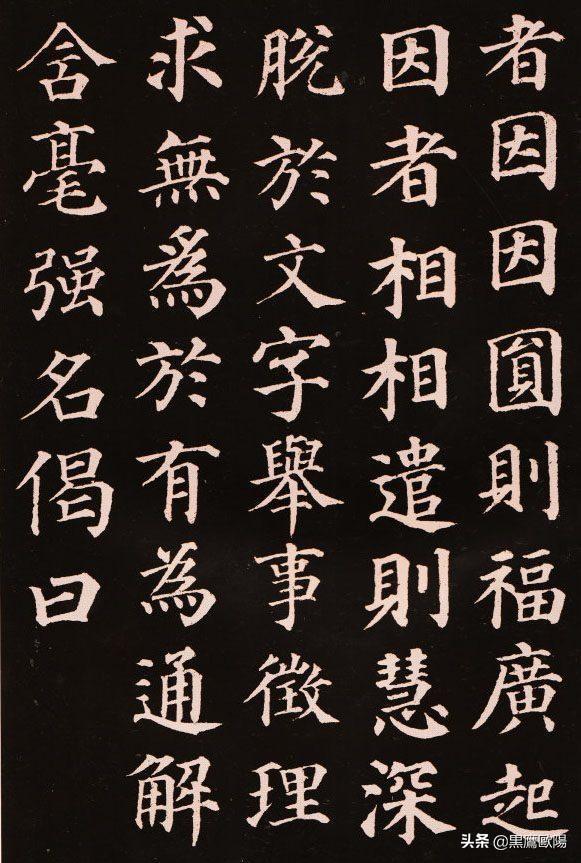 者因因圓則福廣起
因者相相遣則慧深
脱於文字舉事徵理
求無爲於有為通解
含毫强名偈曰
头条 @黒鷹歐陽